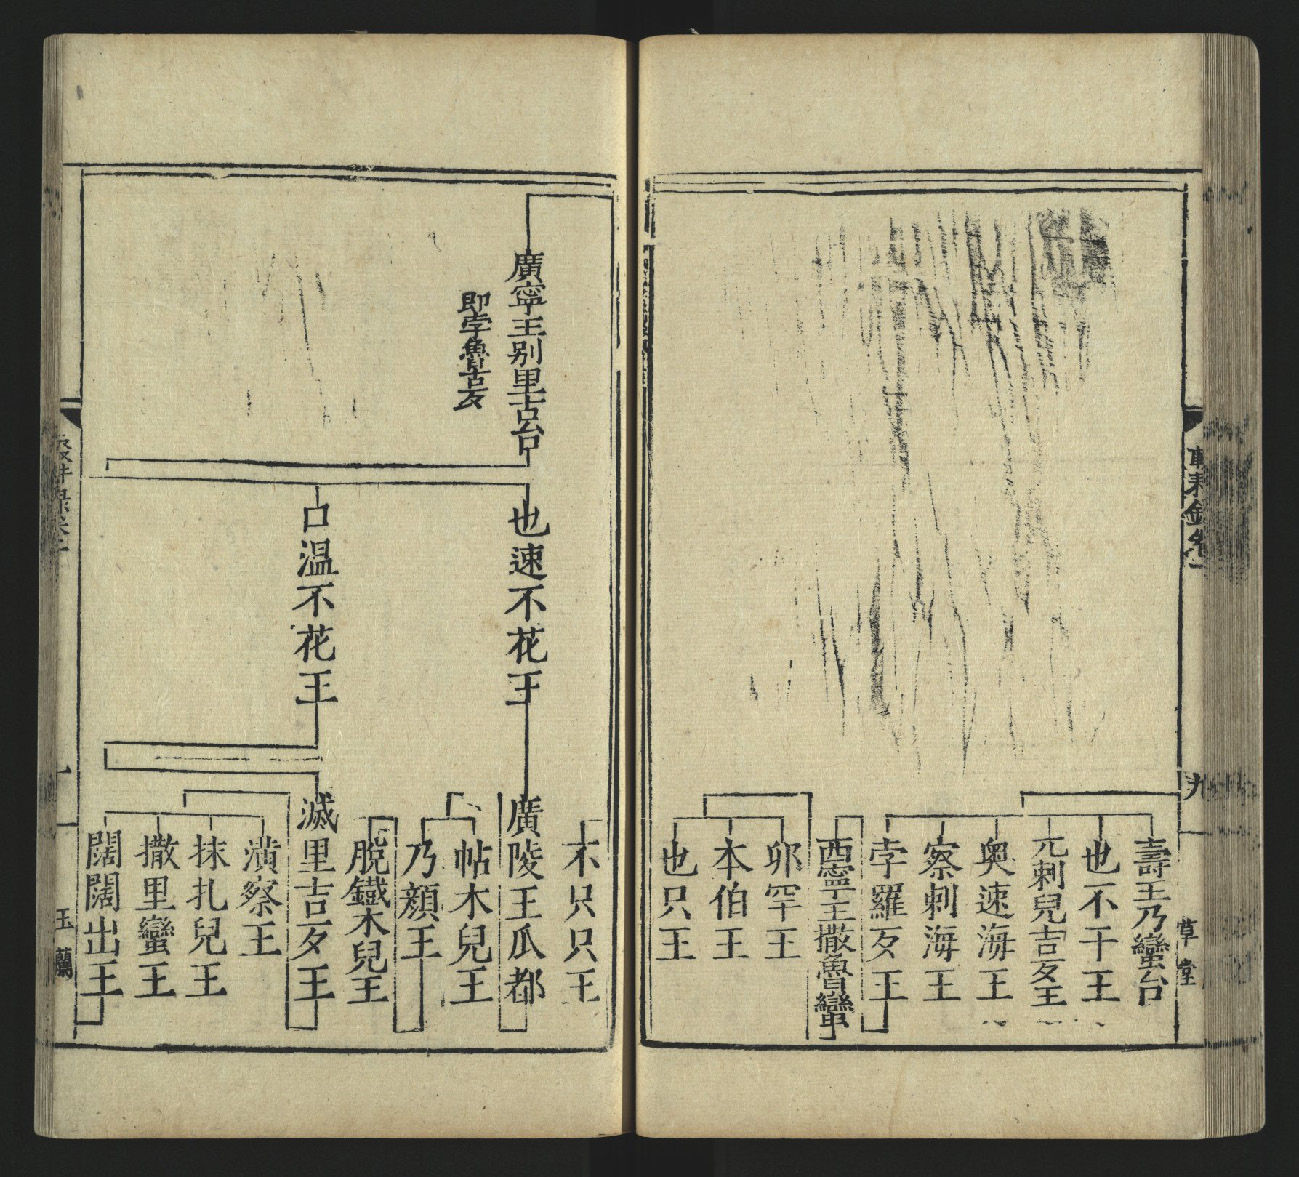 壽王乃蠻台
也不干王
元剌兒吉歹王
奧速海王
察剌海王
孛羅歹王
西寧王撒魯蠻
夘罕王
本伯王
也只王
九
草堂
廣寧王別里古台
即孛魯古歹
也速不花王
口溫不花王
木只只王
廣陵王瓜都
帖木兒王
乃顏王
脫鐵木兒王
滅里吉歹王
潢察王
抹扎兒王
撒里蠻王
闊闊出王
玉蘭